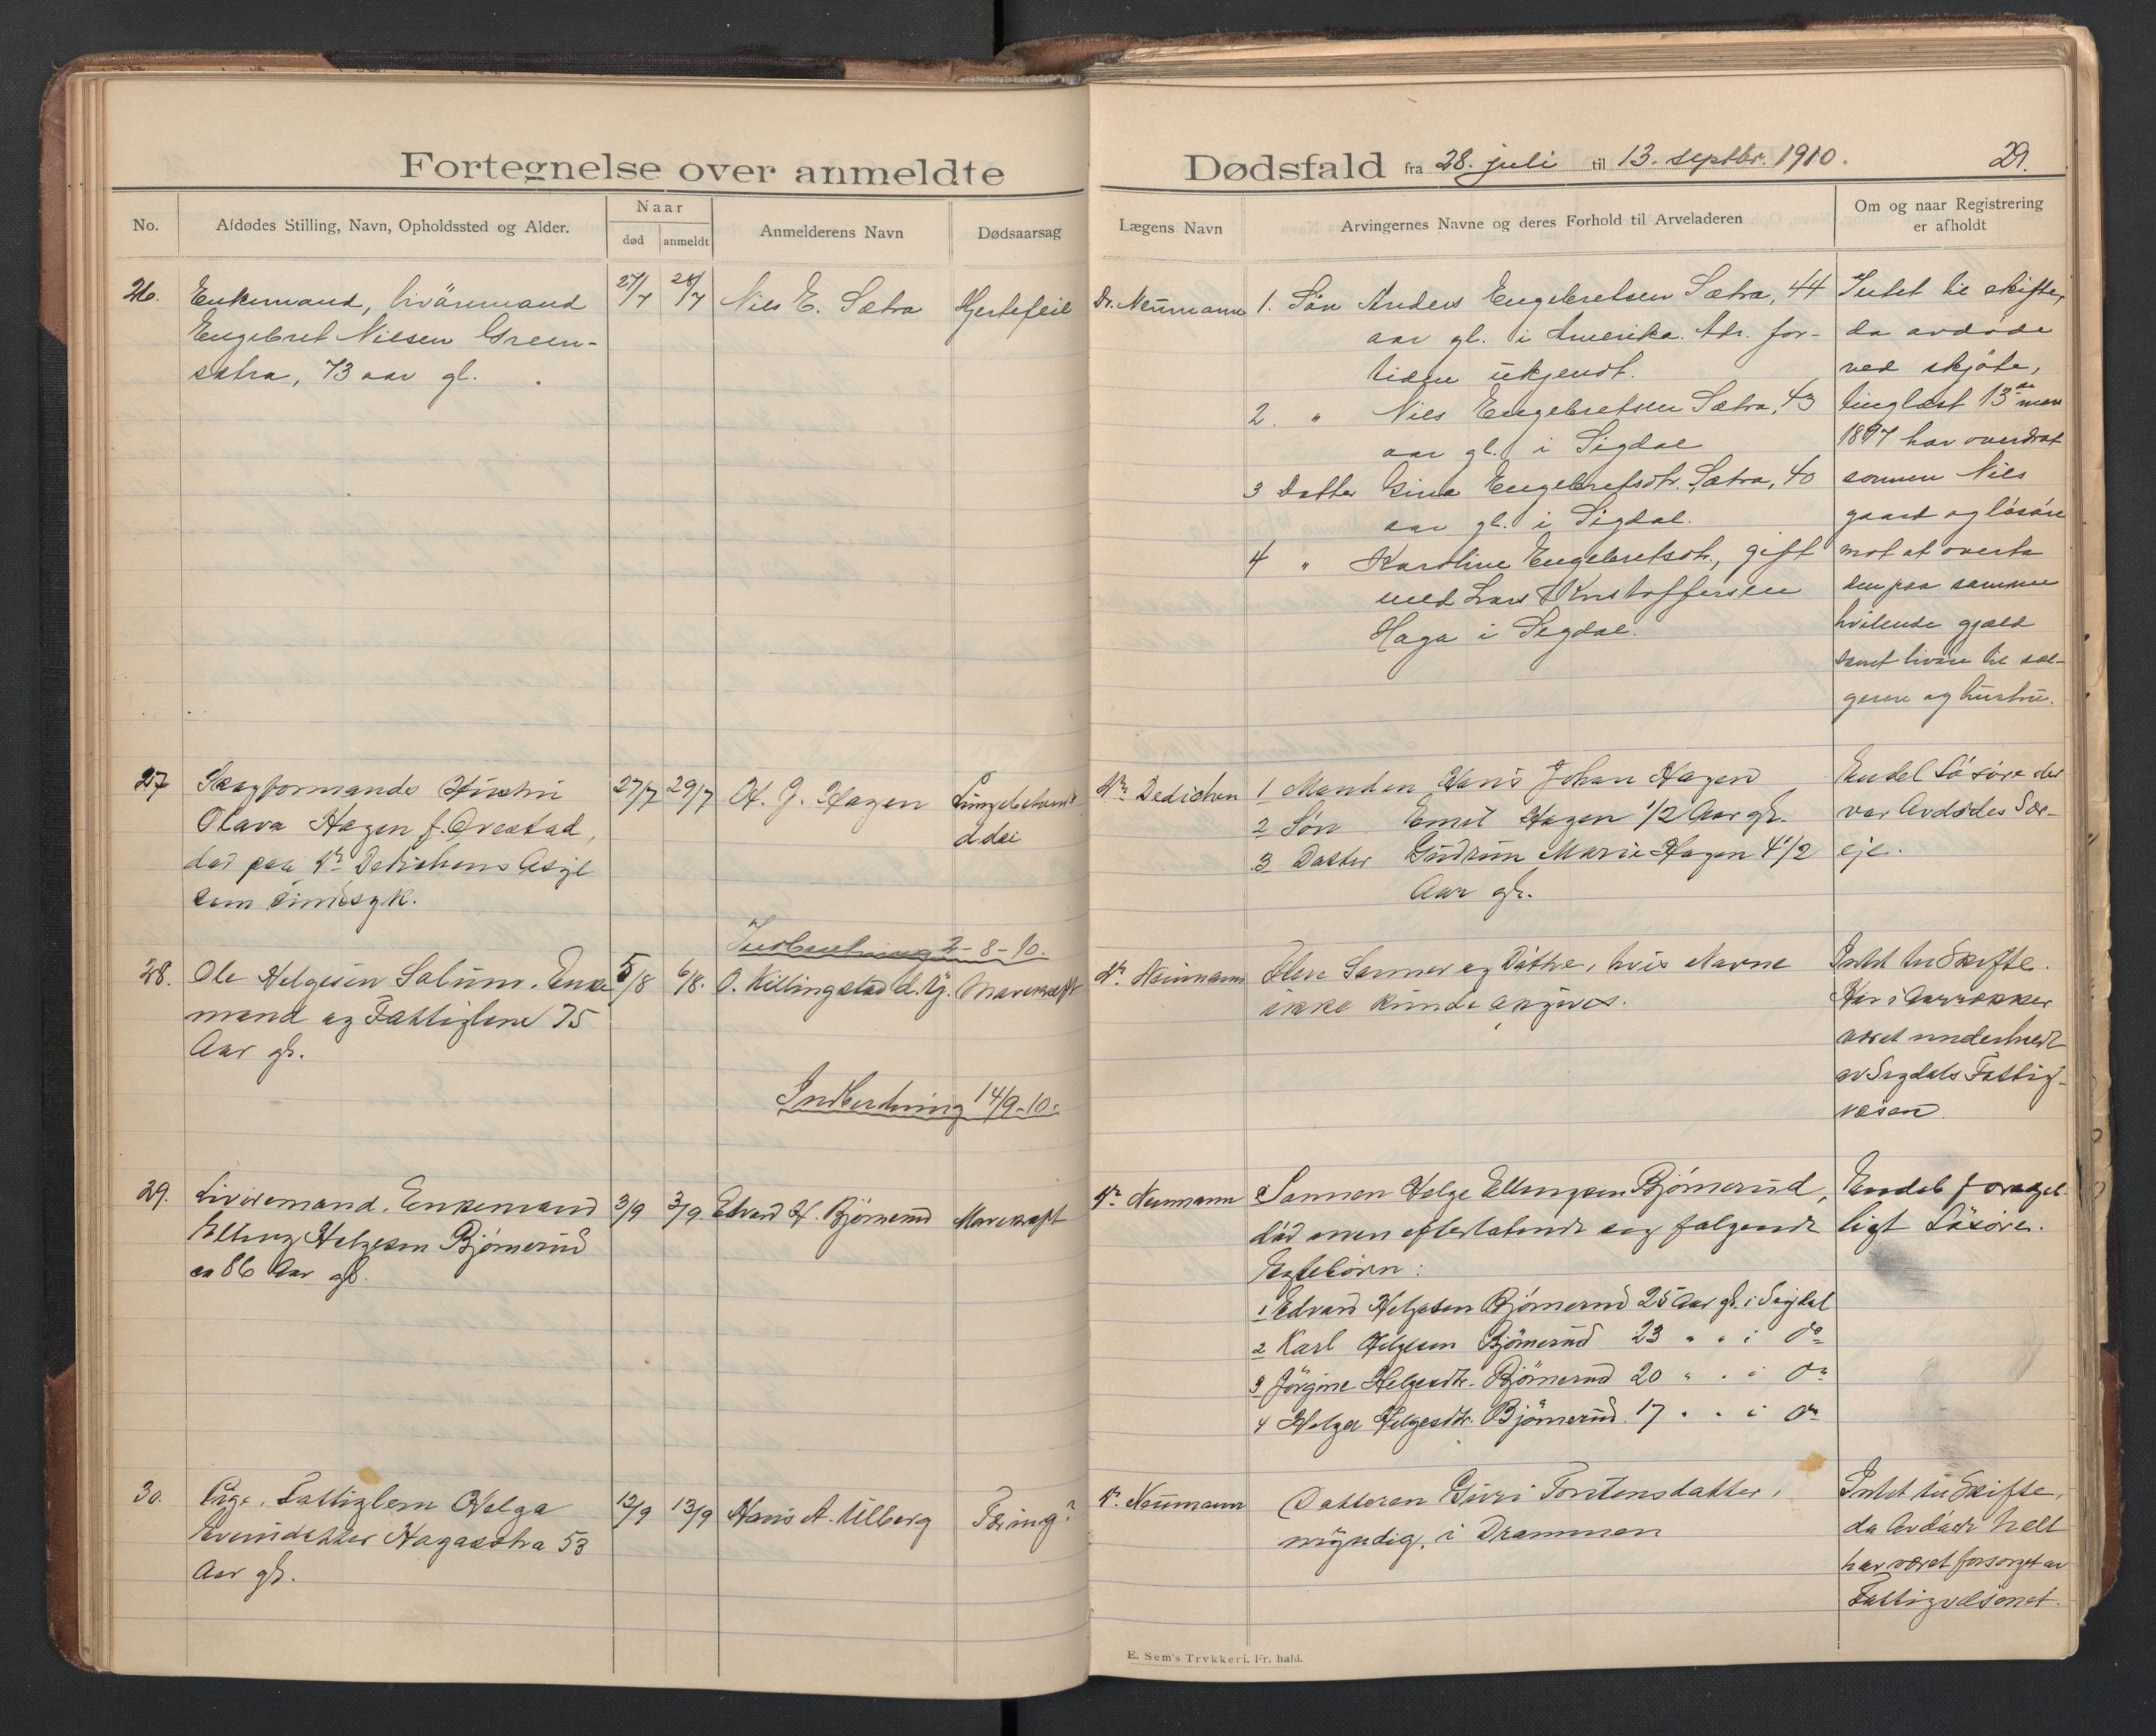 Fortegnelse over anmeldte
Dødsfald fra 28. juli til 13. septbr. 1910.
29.
No.
Afdødes Stilling, Navn, Opholdssted og Alder.
Naar
død
anmeldt
Anmelderens Navn
Dødsaarsag
Lægens Navn
Arvingernes Navne og deres Forhold til Arveladeren
Om og naar Registrering
er afholdt
26.
Enkemand, livöremand
Engebret Nilsen Green-
sætra, 73 aar gl.
27/7
28/7
Nils E. Sætra
Hjertefeil
Dr. Neumann
1. Søn Anders Engebretsen Sætra, 44
aar gl. i Amerika. Adr. for-
tiden ukjendt.
2. " Nils Engebretsen Sætra, 43
aar gl. i Sigdal
3 Datter Gina Engebretsdtr. Sætra, 40
aar gl. i Sigdal.
4 " Karoline Engebretsdtr., gift
med Lars Kristoffersen
Haga i Sigdal.
Intet til skifte,
da avdøde
ved skjøte,
tinglæst 13de
1897 har overdrat
sønnen Nils
gaard og løsøre
mot at overta
den paa samme
hvilende gjæld
samt livøre til sæl-
geren og hustru.
27
Skogformands Hustru
Olava Hagen f. Qvestad,
død paa Dr. Dedichens Asyl
som sindssyk.
27/7
29/7
H. J. Hagen
Dr Dedichen
1 Manden Hans Johan Hagen
2 Søn Emil Hagen 1/2 Aar gl.
3 Datter Gudrun Marie Hagen 4 1/2
Aar gl.
Endel Løsøre der
var Avdødes Sær-
eje.
Indberetning 2-8-10.
28.
Ole Helgesen Solum. Enke
mand og Fattiglem 75
Aar gl.
5/8
6/8.
O. Killingstad d. y.
Mavekræft
Dr. Neumann
Flere Sønner og Døtre, hvis Navne
ikke kunde opgives.
Intet til Skifte.
Har i Aarrækker
været underholdt
av Sigdals Fattig-
væsen.
Indberetning 14/9-10.
29.
Livøremand. Enkemand
Elling Helgesen Bjørnerud
ca 86 Aar gl.
3/9
3/9.
Edvard H. Bjørnerud
Mavekræft
Dr. Neumann
Sønnen Helge Ellingsen Bjørnerud,
död men efterlatende sig følgende
Egtebörn:
1 Edvard Helgesen Bjørnerud 25 Aar gl. i Sigdal
2 Karl Helgesen Bjørnerud 23 " " i do
3 Jörgine Helgesdtr. Bjørnerud 20 " " i do
4 Helga Helgesdtr. Bjørnerud 17 " " i do
Endel
ligt Løsøre.
30.
Pige, Fattiglem Helga
Evensdatter Hagasætra 53
Aar gl.
12/9
13/9
Hans A. Ulberg
Tæring?
Dr. Neumann
Datteren Guri Torstensdatter,
myndig, i Drammen
Intet til Skifte,
da Avdøde helt
har været forsørget av
Fattigvæsenet.
E. Sem's Trykkeri. Fr. hald.